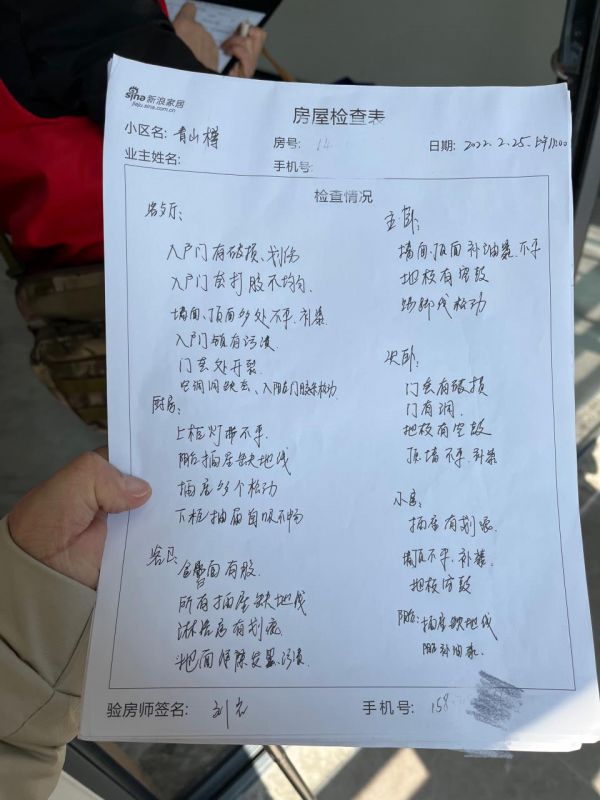 sina 新浪家居
jiaju.sina.com.cn
房屋检查表
小区名: 青山樽 房号: 14 日期: 2022.2.25.
业主姓名: 手机号:
检查情况
客餐厅:
入户门有破损、划伤
入户门套打胶不均匀.
墙面、顶面多处不平、补漆
入户门锁有污渍
门套处开裂
空调洞缺盖、入阳台门胶条松动
厨房:
上柜灯带不平.
阳台插座缺地线
插座多个松动
下柜抽屉自吸不畅
客卫:
面有胶.
所有插座缺地线
淋浴房有划痕
地面污渍.
主卧:
墙面、顶面补油漆.不平
地板有空鼓
踢脚线松动
次卧:
门套有破损
门有洞.
地板有空鼓
顶墙不平、补漆
小房:
插座有划痕
墙顶不平、补漆.
地板空鼓
阳台: 插座缺地线
阳台补油漆.
验房师签名: 刘 手机号: 158